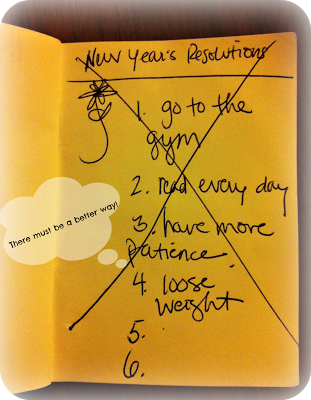 New Year's Resolutions
1. go to the
gym
2. read every day
3. have more
patience
4. loose
weight
5.
6.
There must be a better way!